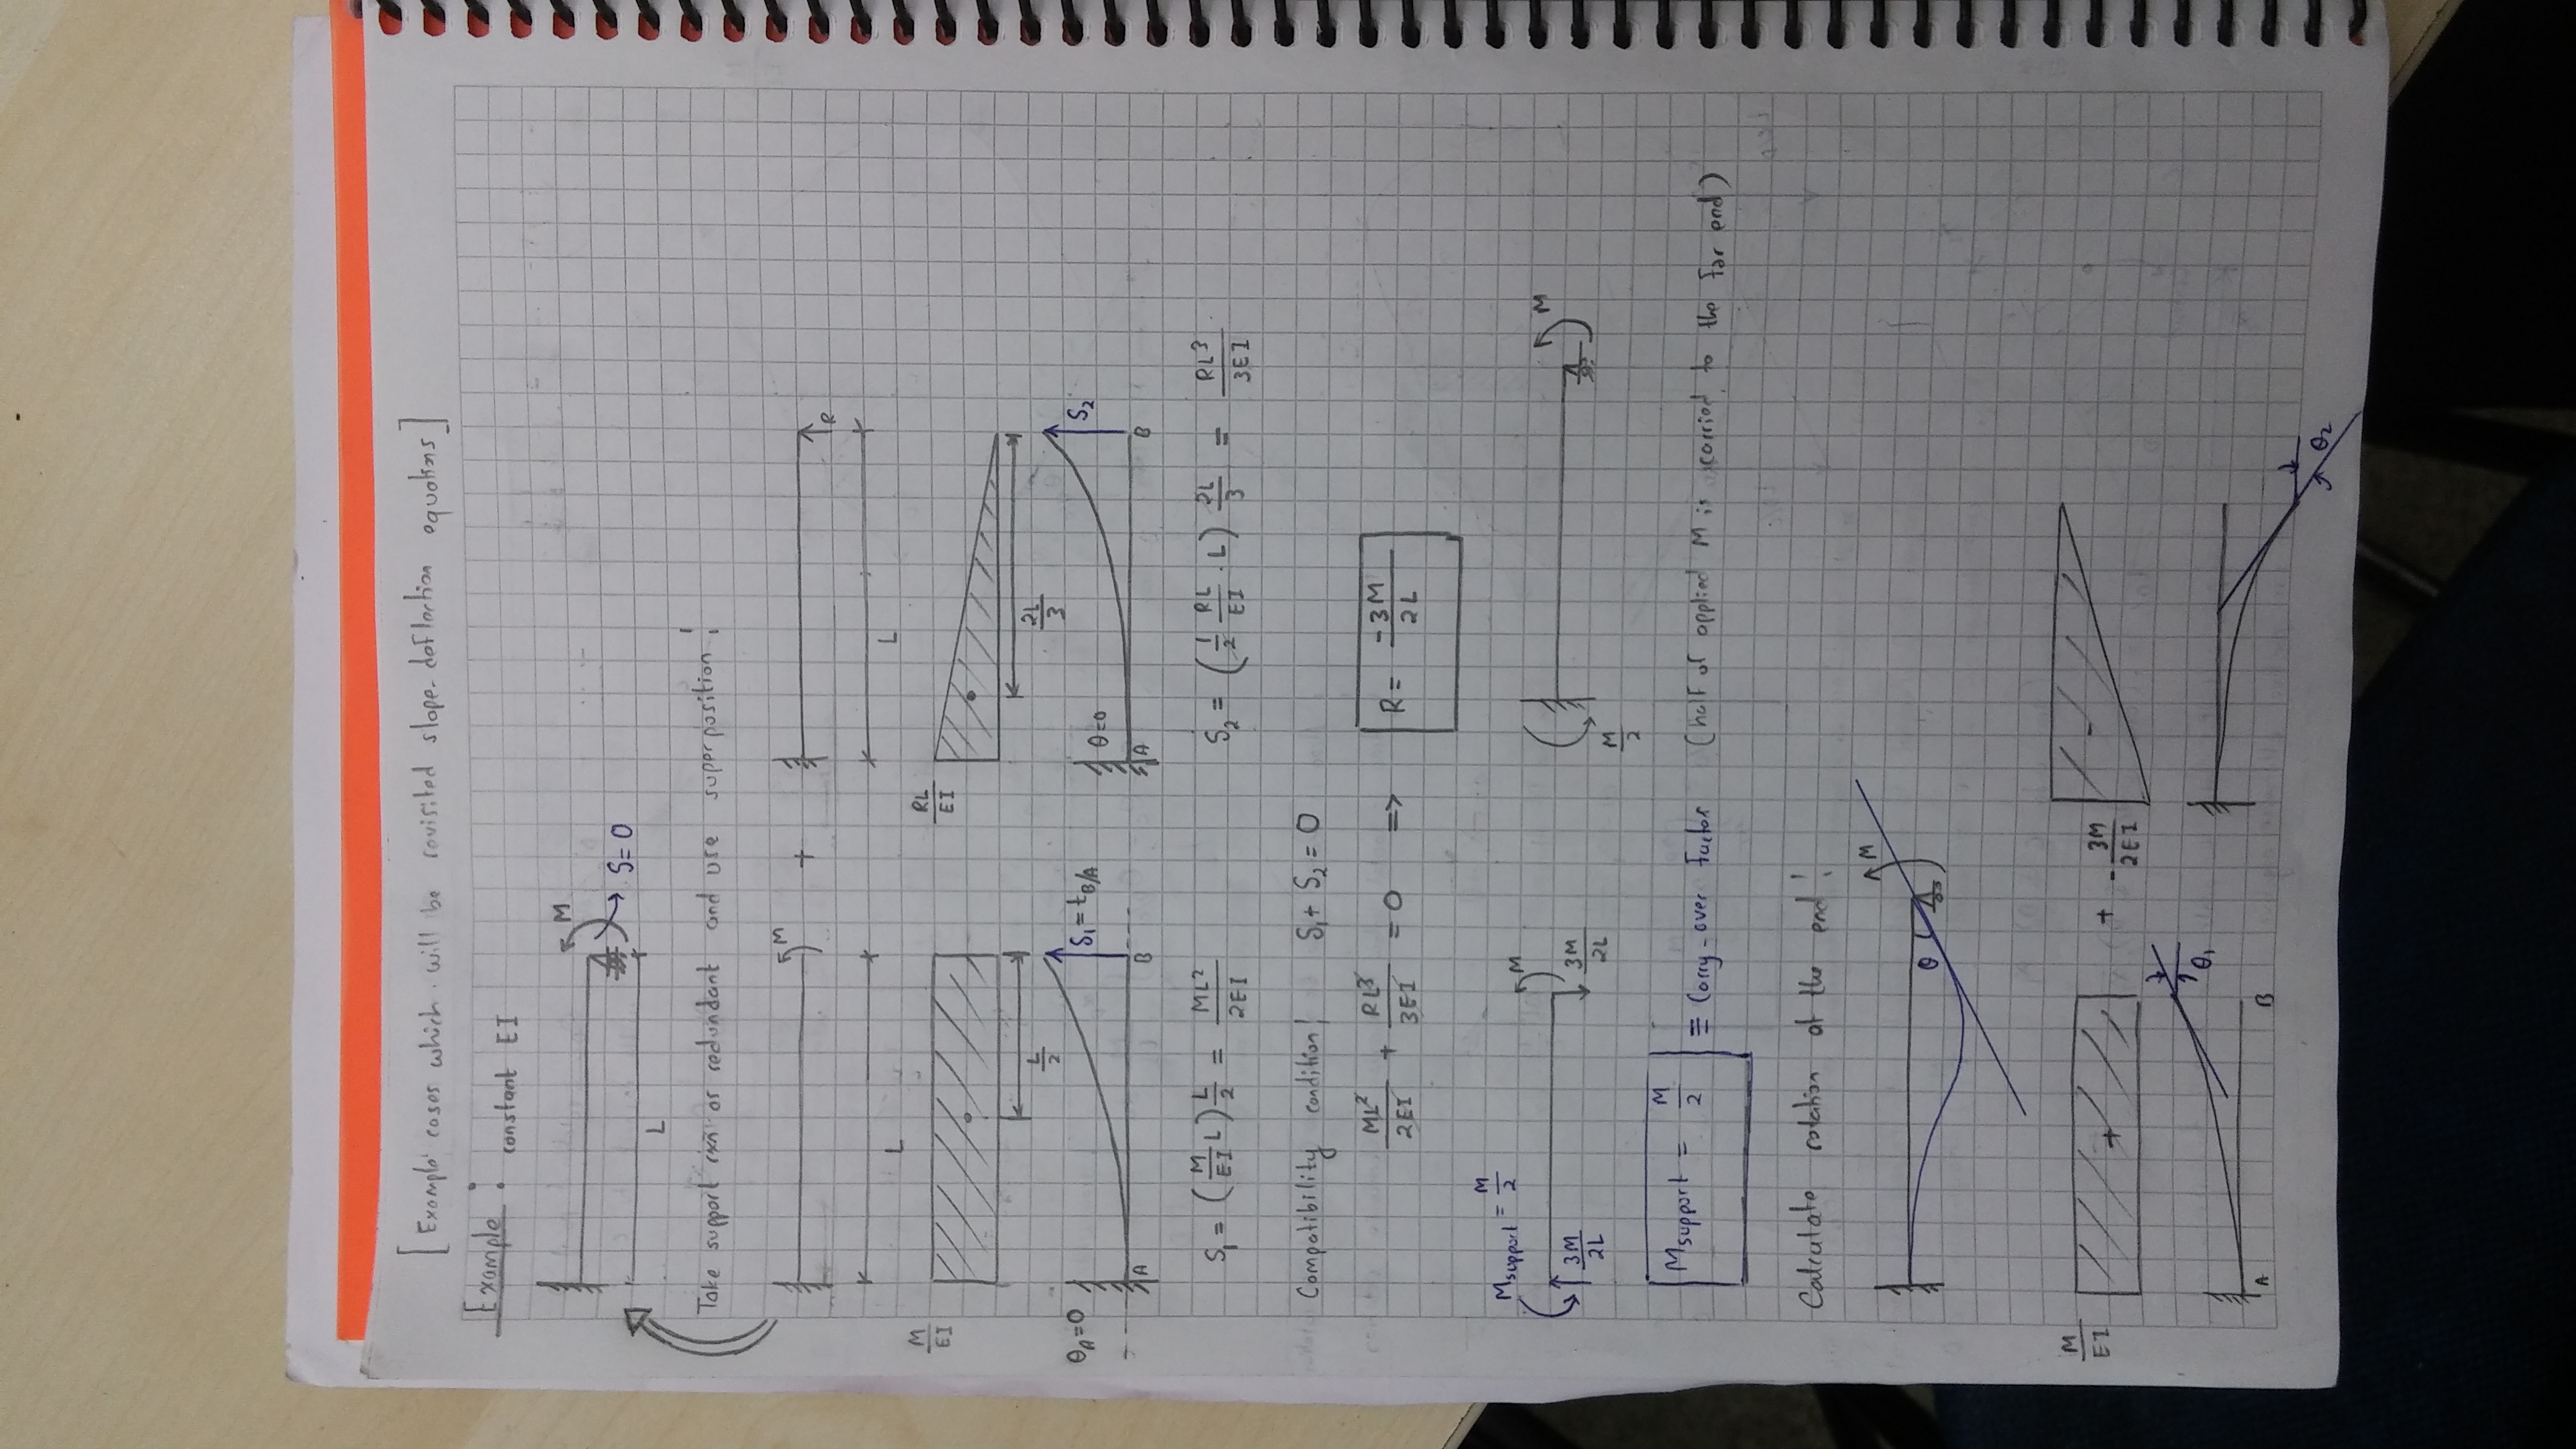 [Example cases which will be revisited slope-deflection equations]
Example : constant EI
M
δ=0
L
Take support rxn as redundant and use superposition!
M + R
L L
M/EI RL/EI
L/2 2L/3
θA=0 A B δ1=tB/A θ=0 A B δ2
δ1 = (M/EI L) L/2 = ML²/2EI δ2 = (1/2 RL/EI . L) 2L/3 = RL³/3EI
Compatibility condition| δ1 + δ2 = 0
ML²/2EI + RL³/3EI = 0 => R = -3M/2L
Msupport = M/2
3M/2L M 3M/2L M/2 M
Msupport = M/2 ≡ Carry-over factor (half of applied M is carried to the far end)
Calculate rotation at the end!
θ M
M/EI + + -3M/2EI -
A B θ1 θ2